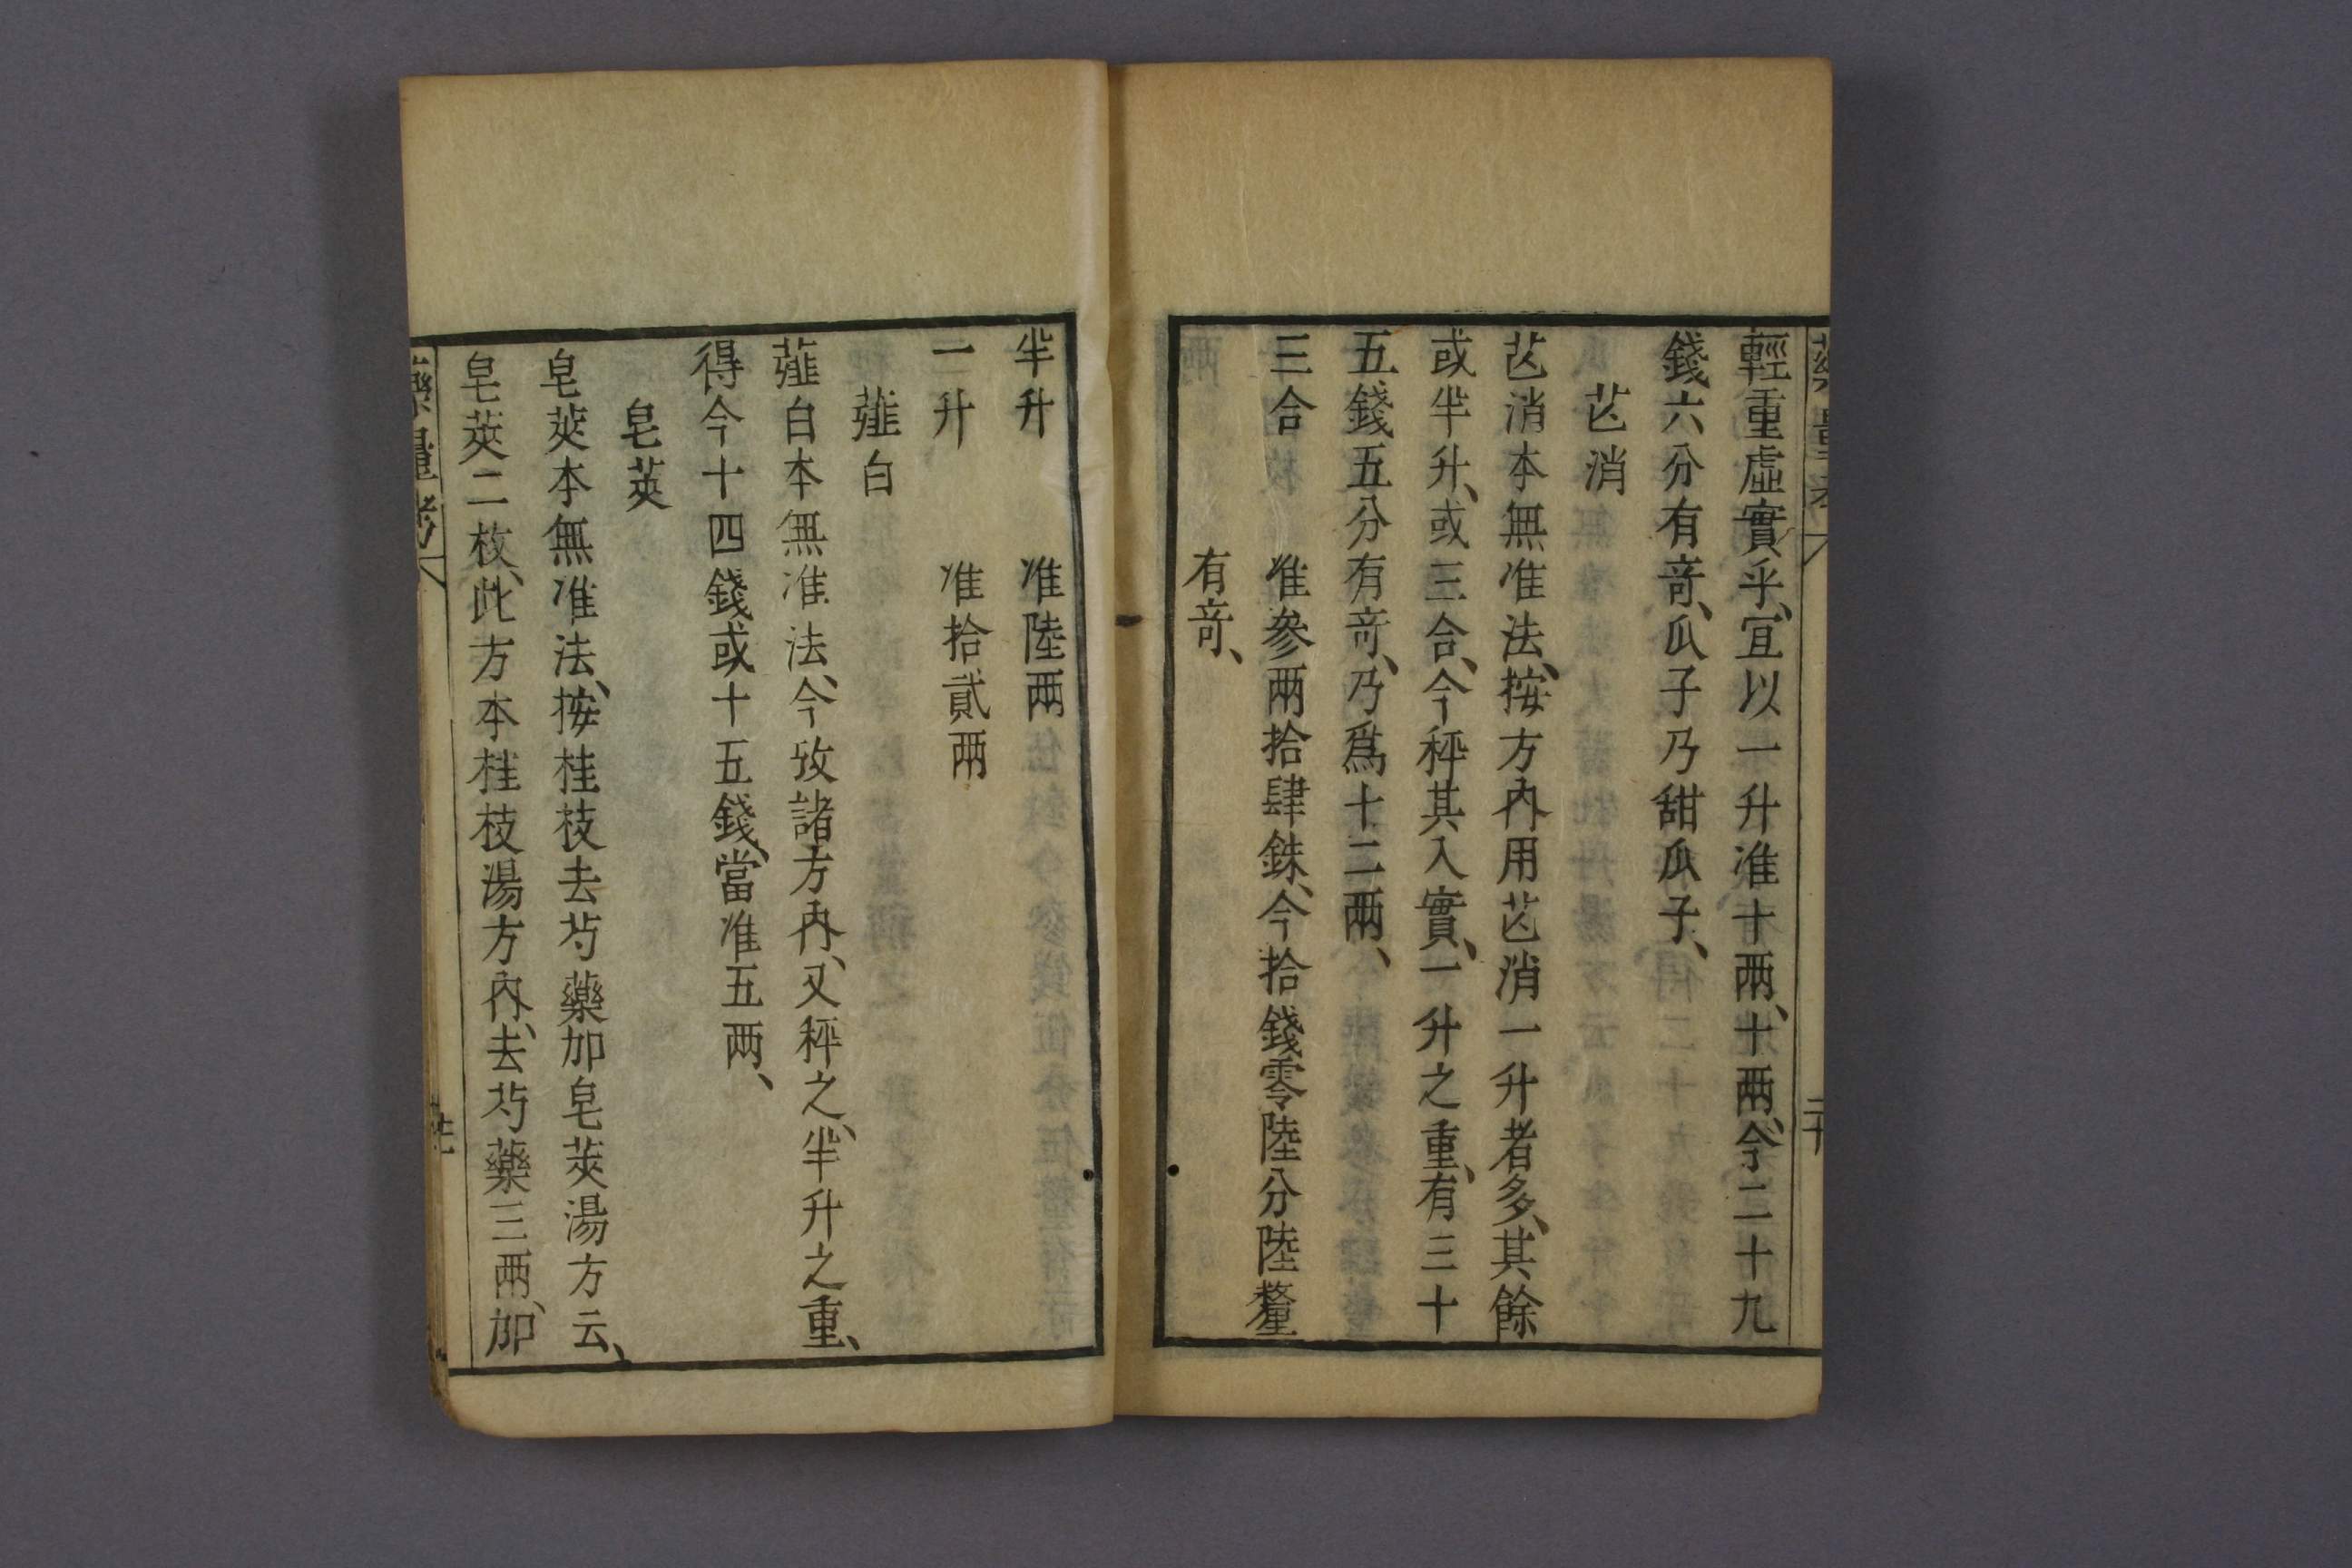 輕重虛實乎、宜以一升准十兩、十兩、今二十九
錢六分有竒、瓜子乃甜瓜子、
芒消
芒消本無准法、按方內用芒消一升者多、其餘
或半升、或三合、今秤其入實、一升之重、有三十
五錢五分有竒、乃爲十二兩、
三合 准參兩拾肆銖、今拾錢零陸分陸釐
有竒、
半升 准陸兩
一升 准拾貳兩
薤白
薤白本無准法、今攷諸方內、又秤之、半升之重、
得今十四錢或十五錢、當准五两、
皂莢
皂莢本無准法、按桂枝去芍藥加皂莢湯方云、
皂莢二枚、此方本桂枝湯方內、去芍藥三兩、加
藥量考